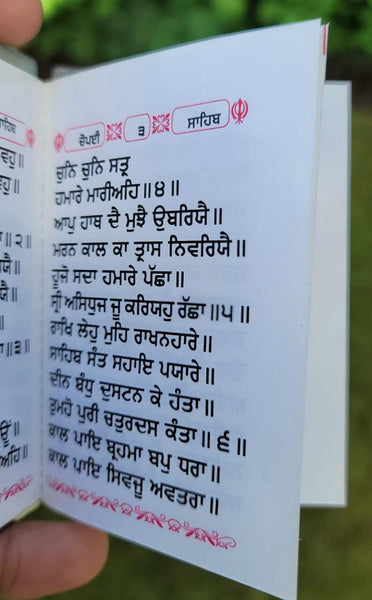 ਚੌਪਈ ੩ ਸਾਹਿਬ
ਚੁਨਿ ਚੁਨਿ ਸਤ੍ਰ
ਹਮਾਰੇ ਮਾਰੀਅਹਿ॥੪॥
ਆਪੁ ਹਾਥ ਦੈ ਮੁਝੈ ਉਬਰਿਯੈ॥
ਮਰਨ ਕਾਲ ਕਾ ਤ੍ਰਾਸ ਨਿਵਰਿਯੈ॥
ਹੂਜੋ ਸਦਾ ਹਮਾਰੇ ਪੱਛਾ॥
ਸ੍ਰੀ ਅਸਿਧੁਜ ਜੂ ਕਰਿਯਹੁ ਰੱਛਾ॥੫॥
ਰਾਖਿ ਲੇਹੁ ਮੁਹਿ ਰਾਖਨਹਾਰੇ॥
ਸਾਹਿਬ ਸੰਤ ਸਹਾਇ ਪਯਾਰੇ॥
ਦੀਨ ਬੰਧੁ ਦੁਸਟਨ ਕੇ ਹੰਤਾ॥
ਤੁਮਹੋ ਪੁਰੀ ਚਤੁਰਦਸ ਕੰਤਾ॥੬॥
ਕਾਲ ਪਾਇ ਬ੍ਰਹਮਾ ਬਪੁ ਧਰਾ॥
ਕਾਲ ਪਾਇ ਸਿਵਜੂ ਅਵਤਰਾ॥